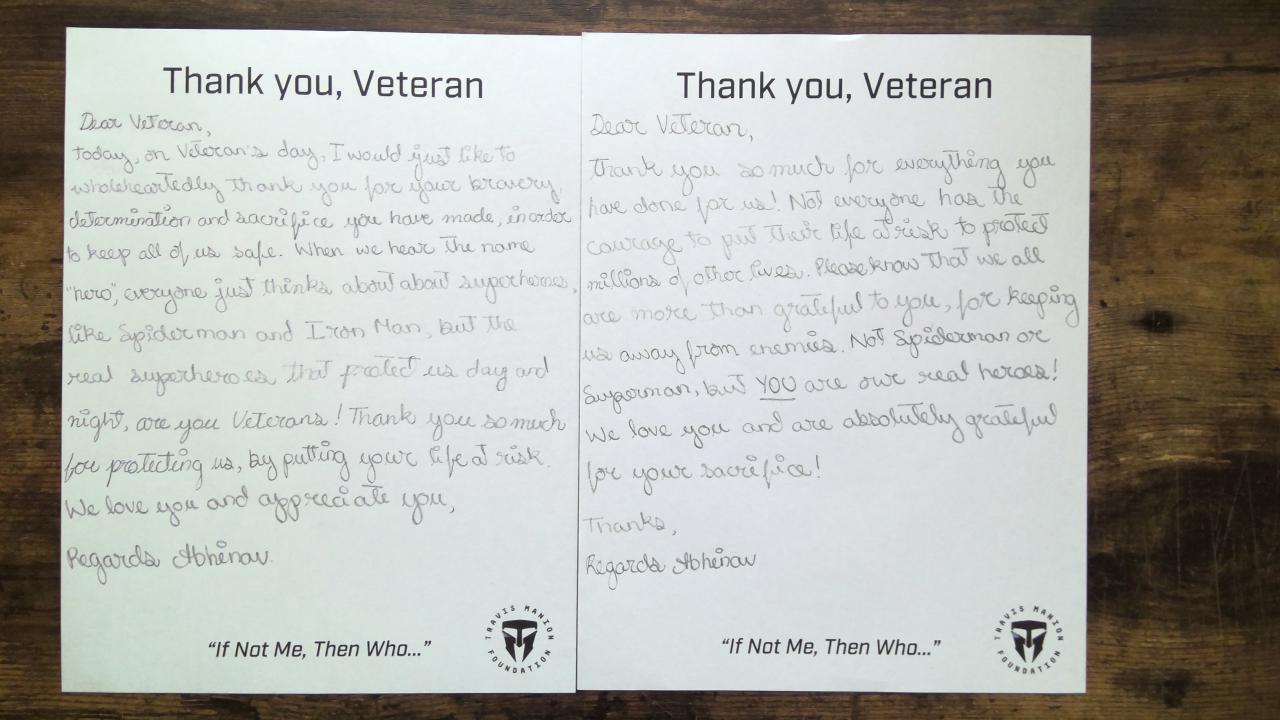 Thank you, Veteran
Dear Veteran,
today, on Veteran's day, I would just like to
wholeheartedly thank you for your bravery,
determination and sacrifice you have made, in order
to keep all of us safe. When we hear the name
"hero", everyone just thinks about about superheroes,
like Spiderman and Iron Man, but the
real superheroes, that protect us day and
night, are you Veterans! Thank you so much
for protecting us, by putting your life at risk.
We love you and appreciate you,
Regards Abhinav.
"If Not Me, Then Who..."
TRAVIS MANION
FOUNDATION
Thank you, Veteran
Dear Veteran,
Thank you so much for everything you
have done for us! Not everyone has the
courage to put their life at risk to protect
millions of other lives. Please know that we all
are more than grateful to you, for keeping
us away from enemies. Not Spiderman or
Superman, but YOU are our real heroes!
We love you and are absolutely grateful
for your sacrifice!
Thanks,
Regards Abhinav
"If Not Me, Then Who..."
TRAVIS MANION
FOUNDATION